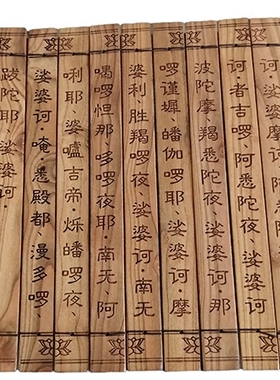 诃·者吉啰、阿悉陀夜、娑婆诃·
波陀摩羯悉陀夜、娑婆诃·那
啰谨墀、皤伽啰夜、娑婆诃·摩
婆利、胜羯啰夜、娑婆诃·南无
喝啰怛那、哆啰夜耶·南无阿
唎耶、婆嚧吉帝、烁皤啰夜、
娑婆诃·唵、悉殿都、漫多啰、
跋陀耶、娑婆诃·